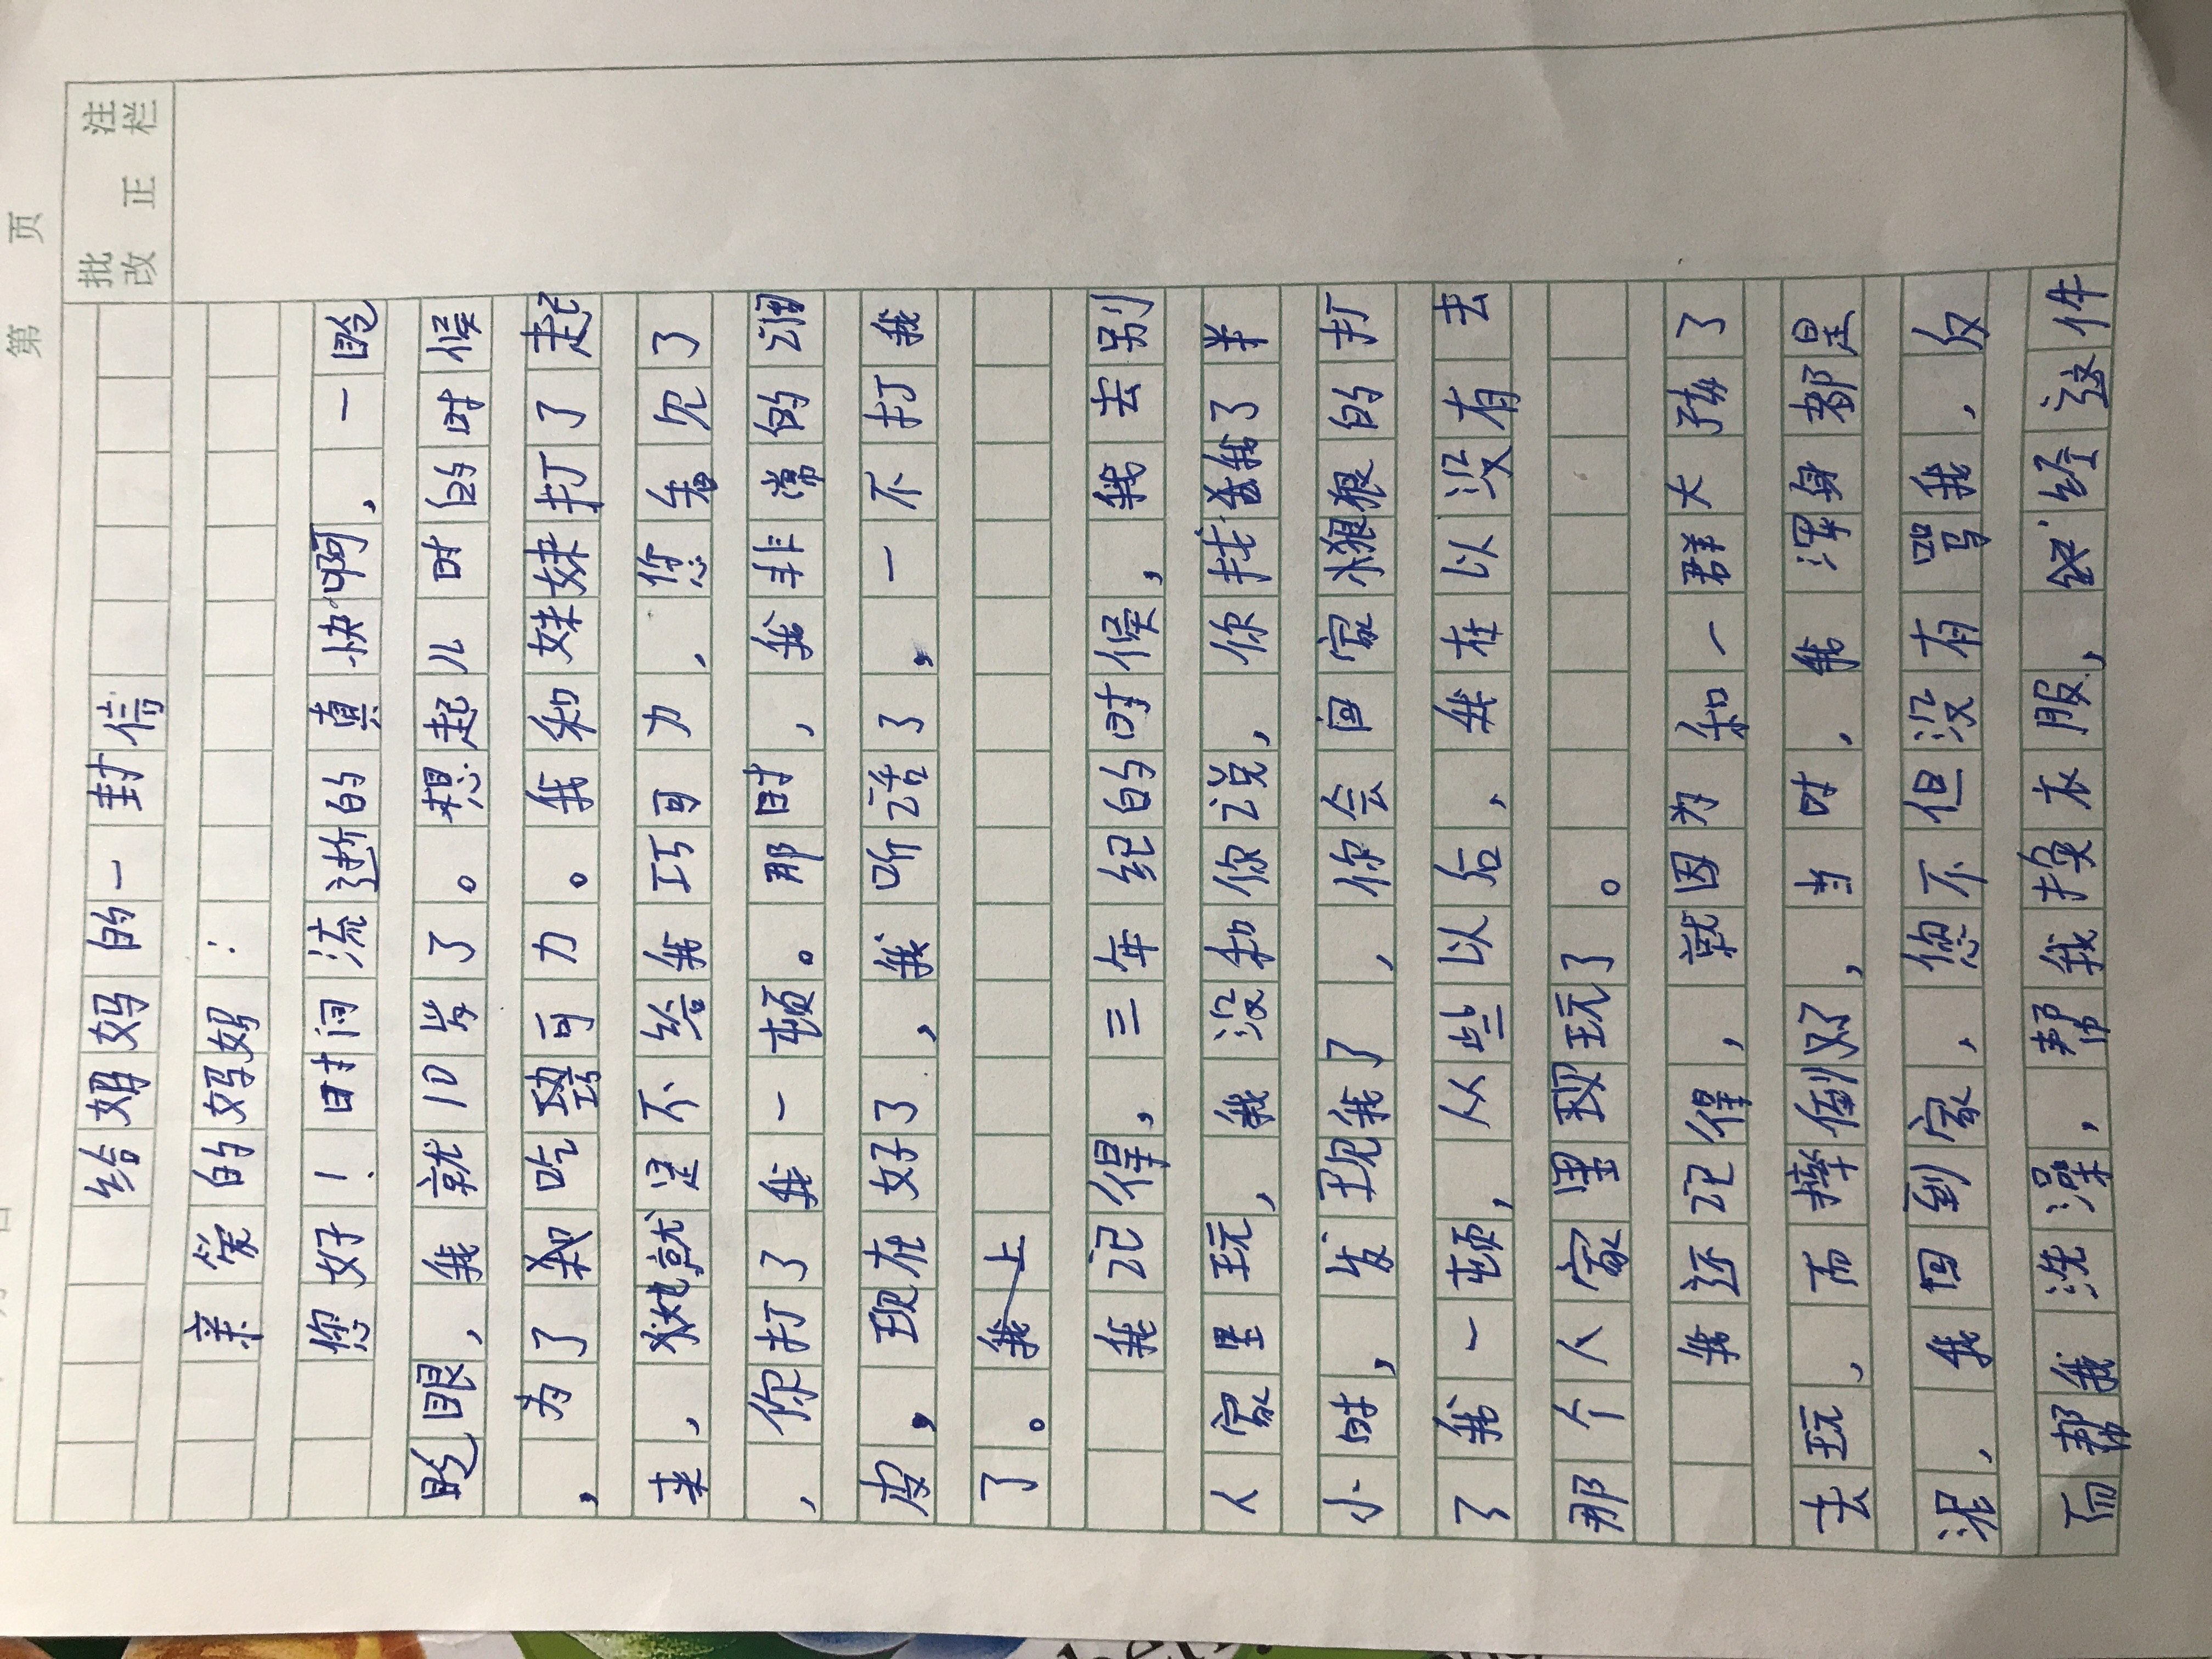 第 页
批改 正 注栏
给妈妈的一封信
亲爱的妈妈：
您好！时间流逝的真快啊，一眨
眨眼，我就10岁了。想起儿时的时候
，为了和吃巧可力。我和妹妹打了起
来，就是不给我巧可力，您知见了
，你打了我一顿。那时，我非常的调
皮，现在好了，我听话了，一不打我
了。我上
我记得，三年纪的时候，我去别
人家里玩，我没和你说，你找我了半
小时，发现我了，你会回家狠狠的打
了我一顿，从些以后，我在以没有去
那个人家里玩了。
我还记得，就因为和一群大孩了
去玩，而摔倒了，当时，我浑身都是
泥，我回到家，您不但没有骂我，反
而帮我洗澡，帮我换衣服，经这件